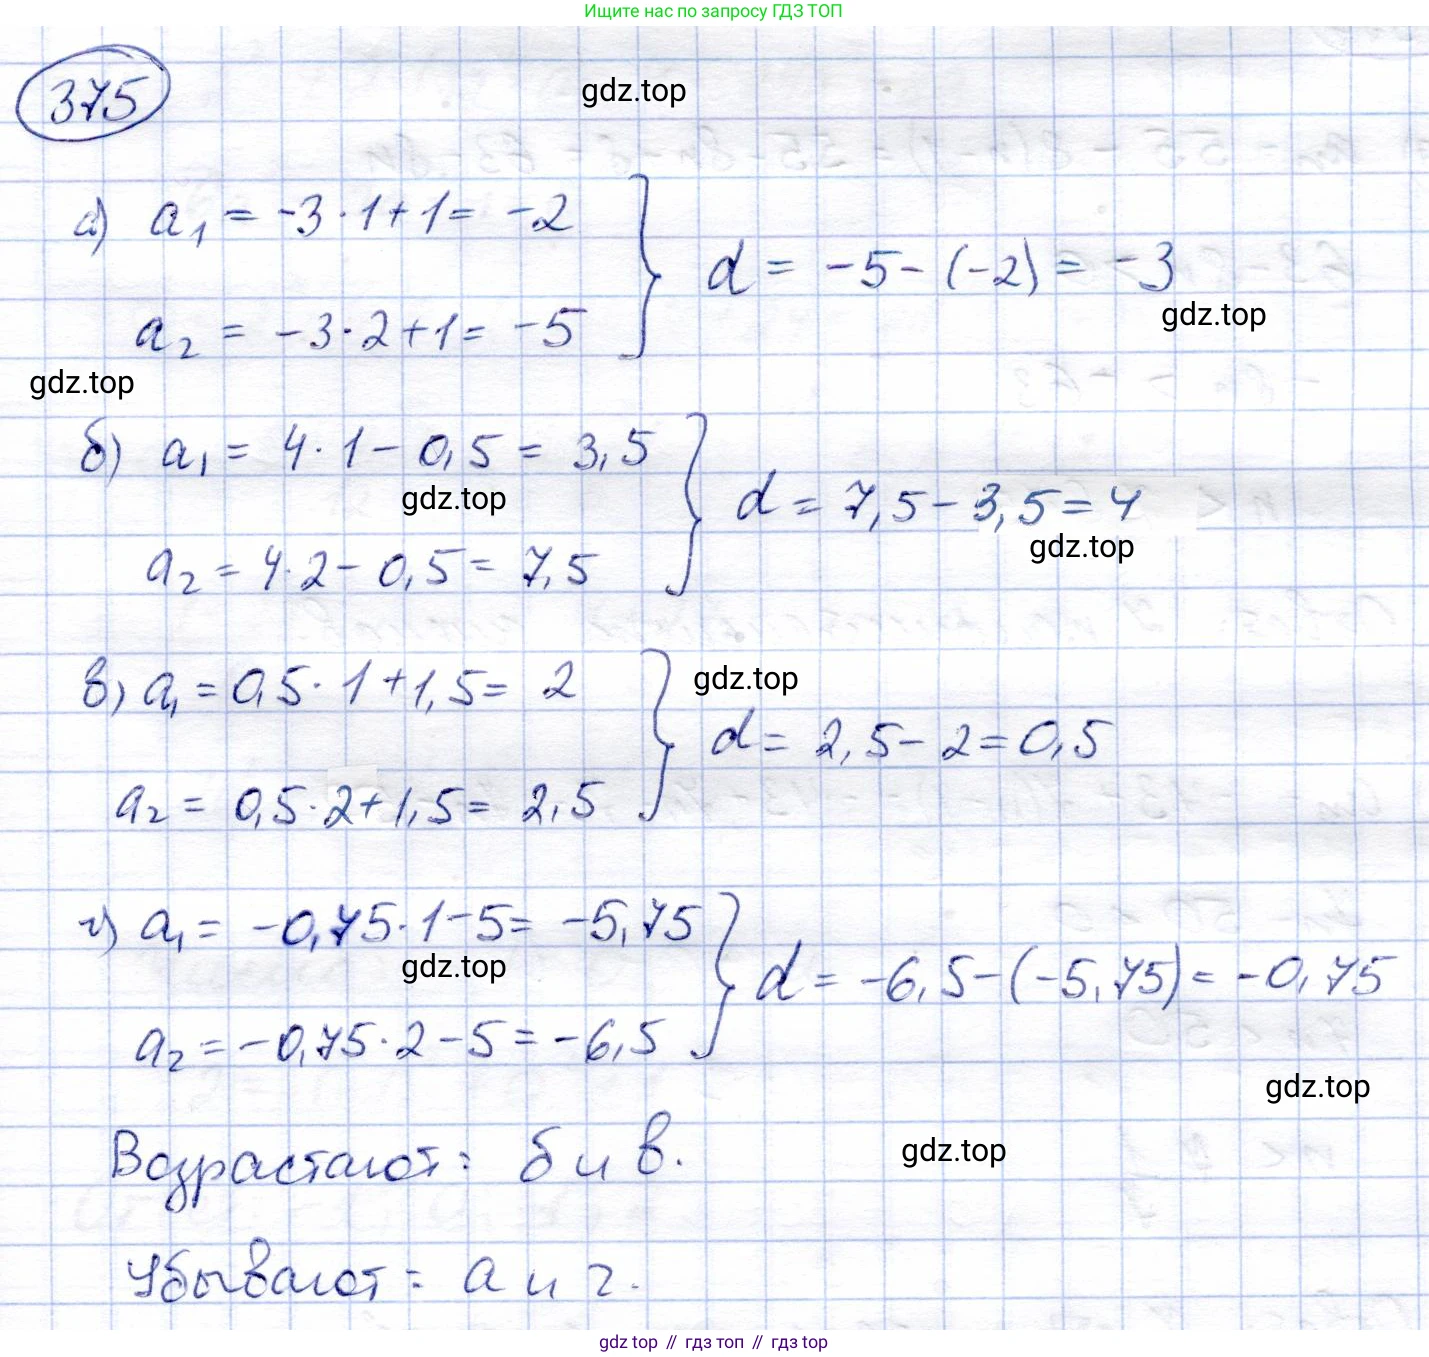 Ищите нас по запросу ГДЗ ТОП
375
gdz.top
а) a₁ = -3·1+1= -2
a₂ = -3·2+1= -5
d = -5-(-2) = -3
gdz.top
gdz.top
б) a₁ = 4·1-0,5 = 3,5
gdz.top
a₂ = 4·2-0,5 = 7,5
d = 7,5-3,5=4
gdz.top
в) a₁ = 0,5·1+1,5= 2
gdz.top
a₂ = 0,5·2+1,5= 2,5
d = 2,5-2=0,5
г) a₁ = -0,75·1-5= -5,75
gdz.top
a₂ = -0,75·2-5= -6,5
d = -6,5-(-5,75)= -0,75
gdz.top
Возрастают: б и в.
gdz.top
Убывают: а и г.
gdz top // гдз топ // гдз top